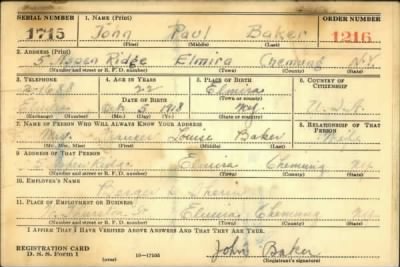 SERIAL NUMBER 1. NAME (Print) ORDER NUMBER
1715 John Paul Baker 1216
(First) (Middle) (Last)
2. ADDRESS (Print)
5 Aspen Ridge Elmira Chemung N.Y.
(Number and street or R. F. D. number) (Town) (County) (State)
3. TELEPHONE 4. AGE IN YEARS 5. PLACE OF BIRTH 6. COUNTRY OF CITIZENSHIP
22 Elmira
DATE OF BIRTH (Town or county)
5 1918 U.S.A.
(Exchange) (Number) (Mo.) (Day) (Yr.) (State or country)
7. NAME OF PERSON WHO WILL ALWAYS KNOW YOUR ADDRESS 8. RELATIONSHIP OF THAT PERSON
Mrs. Louise Baker
(Mr., Mrs., Miss) (First) (Middle) (Last)
9. ADDRESS OF THAT PERSON
Elmira Chemung N.Y.
(Number and street or R. F. D. number) (Town) (County) (State)
10. EMPLOYER'S NAME
11. PLACE OF EMPLOYMENT OR BUSINESS
Elmira Chemung N.Y.
(Number and street or R. F. D. number) (Town) (County) (State)
I AFFIRM THAT I HAVE VERIFIED ABOVE ANSWERS AND THAT THEY ARE TRUE.
REGISTRATION CARD John Baker
D. S. S. Form 1 (over) 16—17105 (Registrant's signature)